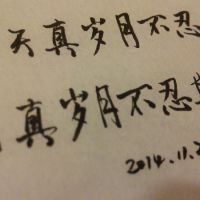 天真岁月不忍
真岁月不忍
2014.11.2